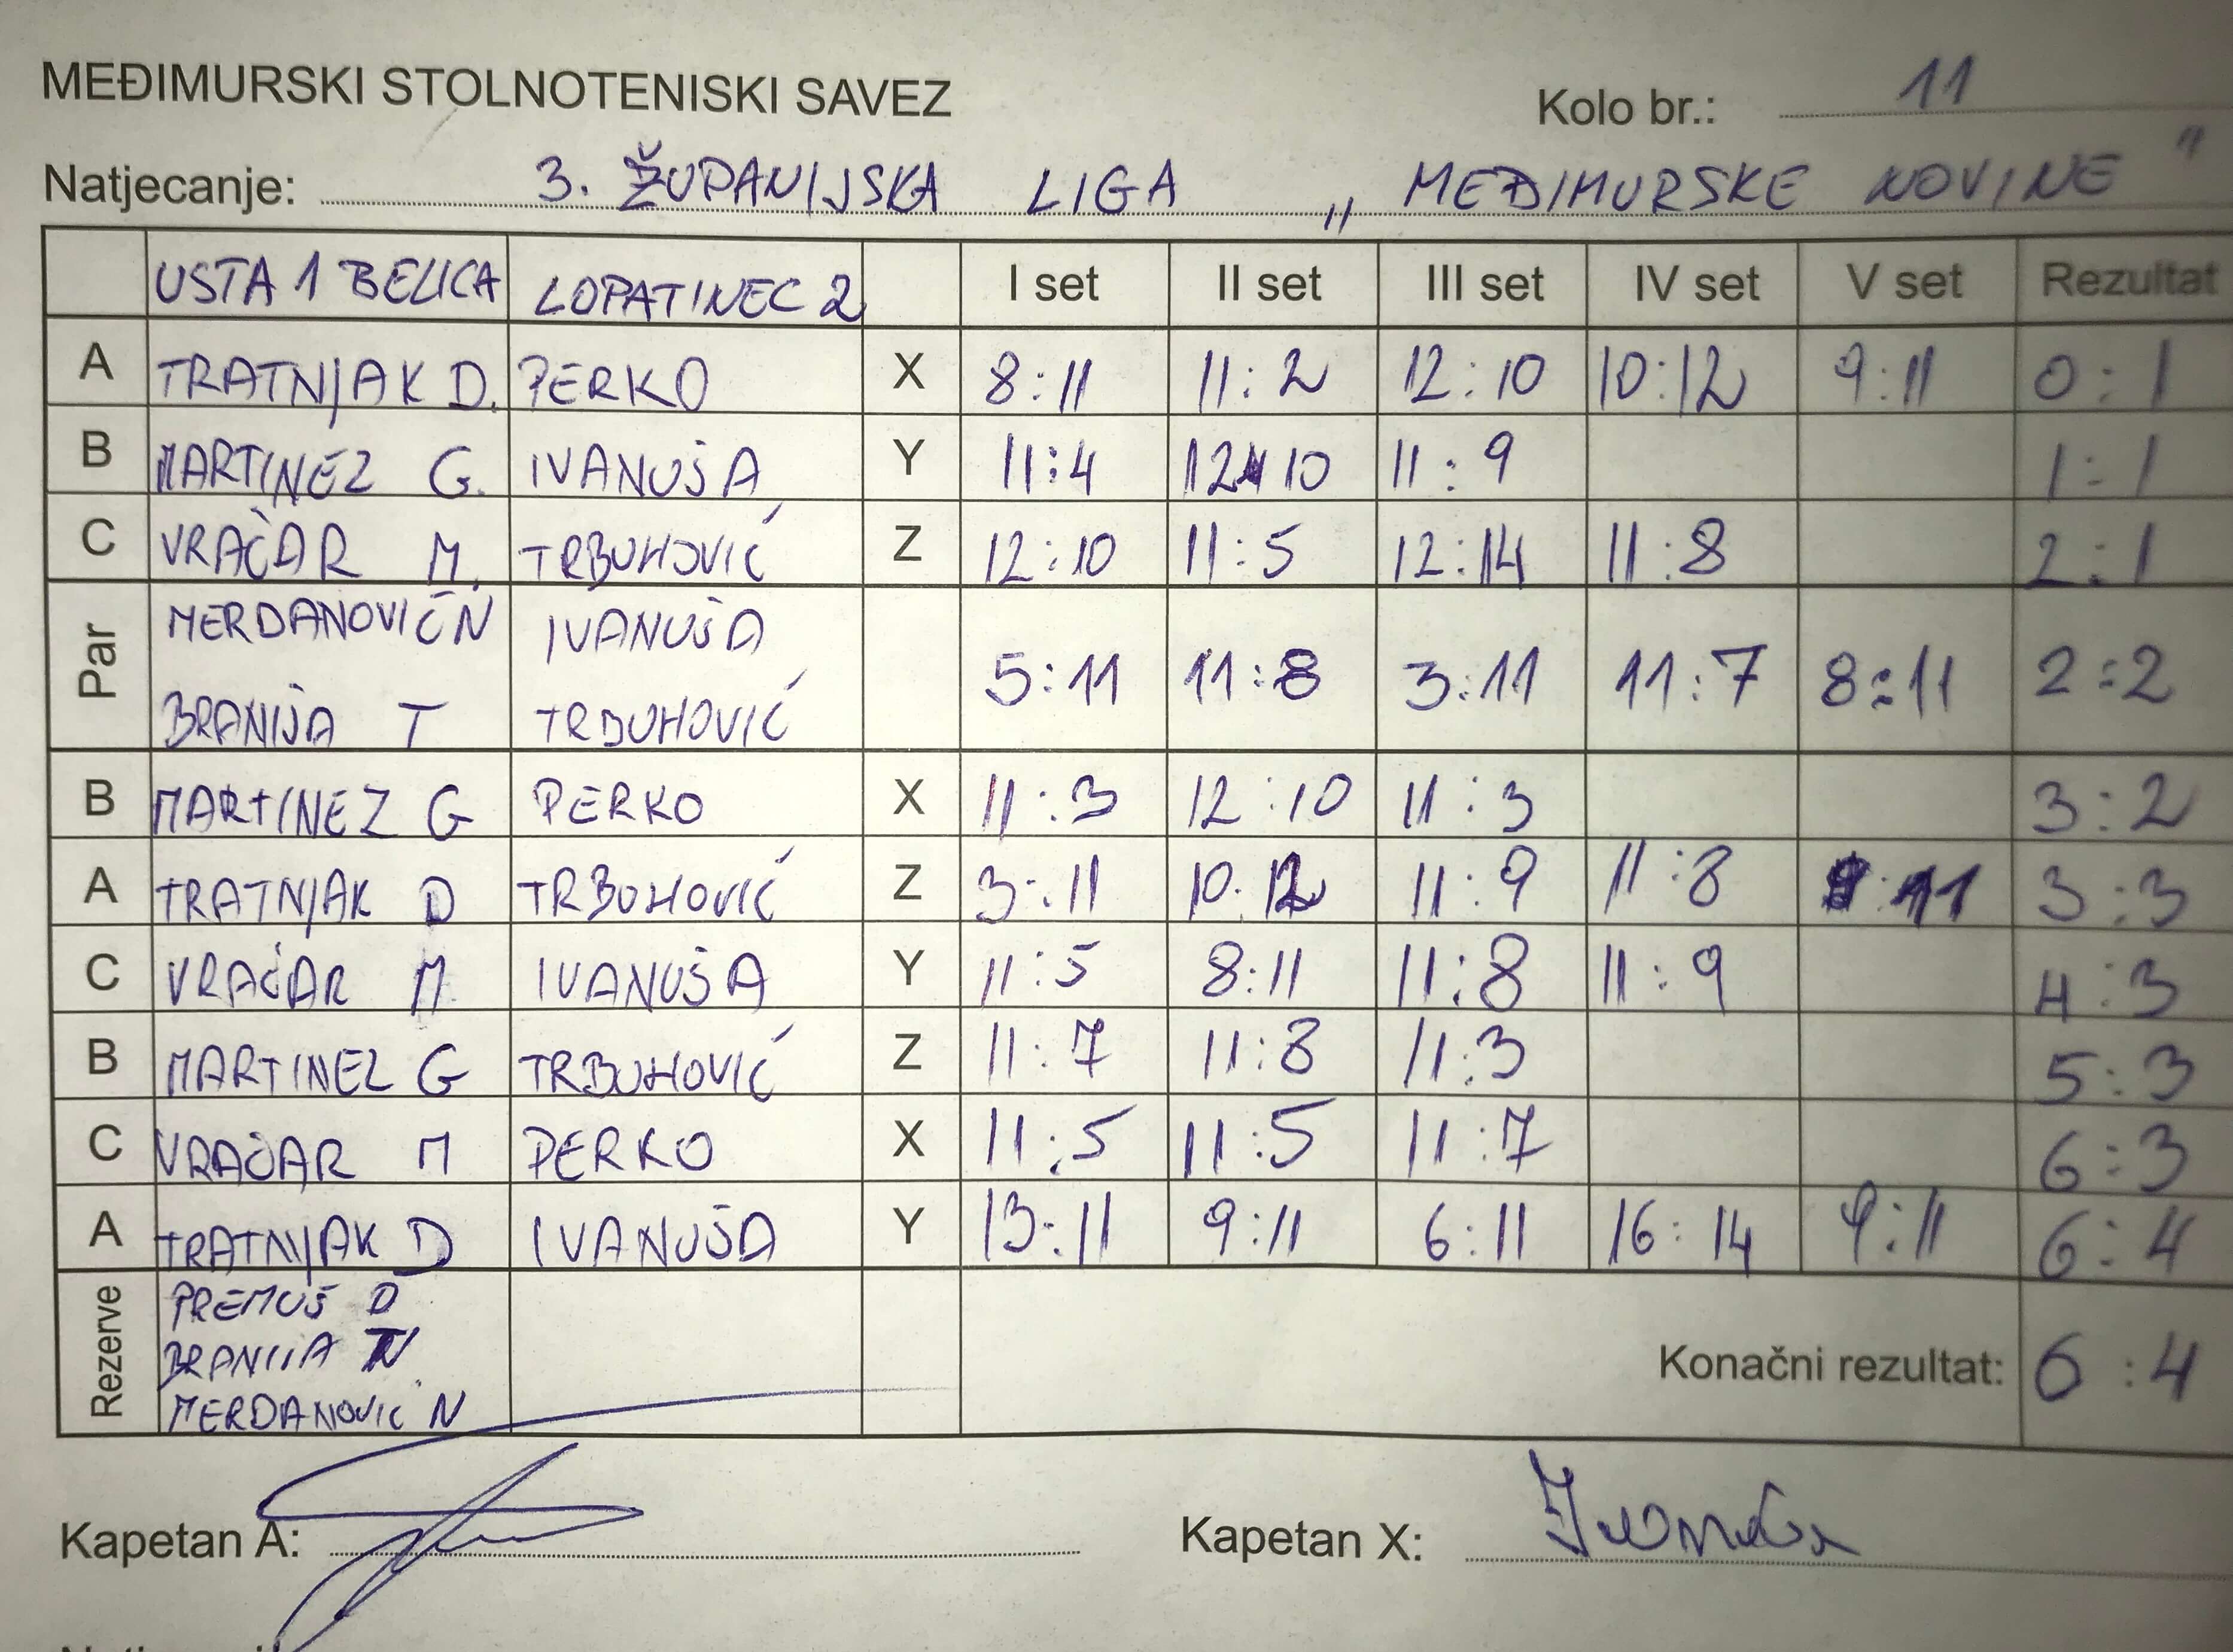 MEĐIMURSKI STOLNOTENISKI SAVEZ Kolo br.: 11
Natjecanje: 3. ŽUPANIJSKA LIGA „ MEĐIMURSKE NOVINE "
USTA 1 BELICA LOPATINEC 2 I set II set III set IV set V set Rezultat
A TRATNJAK D. PERKO X 8:11 11:2 12:10 10:12 9:11 0:1
B MARTINEZ G. IVANUŠA Y 11:4 12:10 11:9 1:1
C VRAČAR M. TRBUHOVIĆ Z 12:10 11:5 12:14 11:8 2:1
Par MERDANOVIĆ N IVANUŠA 5:11 11:8 3:11 11:7 8:11 2:2
BRANIŠA T TRBUHOVIĆ
B MARTINEZ G PERKO X 11:3 12:10 11:3 3:2
A TRATNJAK D TRBUHOVIĆ Z 3:11 10:12 11:9 11:8 9:11 3:3
C VRAČAR M IVANUŠA Y 11:5 8:11 11:8 11:9 4:3
B MARTINEZ G TRBUHOVIĆ Z 11:7 11:8 11:3 5:3
C VRAČAR M PERKO X 11:5 11:5 11:7 6:3
A TRATNJAK D IVANUŠA Y 13:11 9:11 6:11 16:14 9:11 6:4
Rezerve PREMUŠ D
MERDANOVIĆ N
Konačni rezultat: 6:4
Kapetan A: Kapetan X: